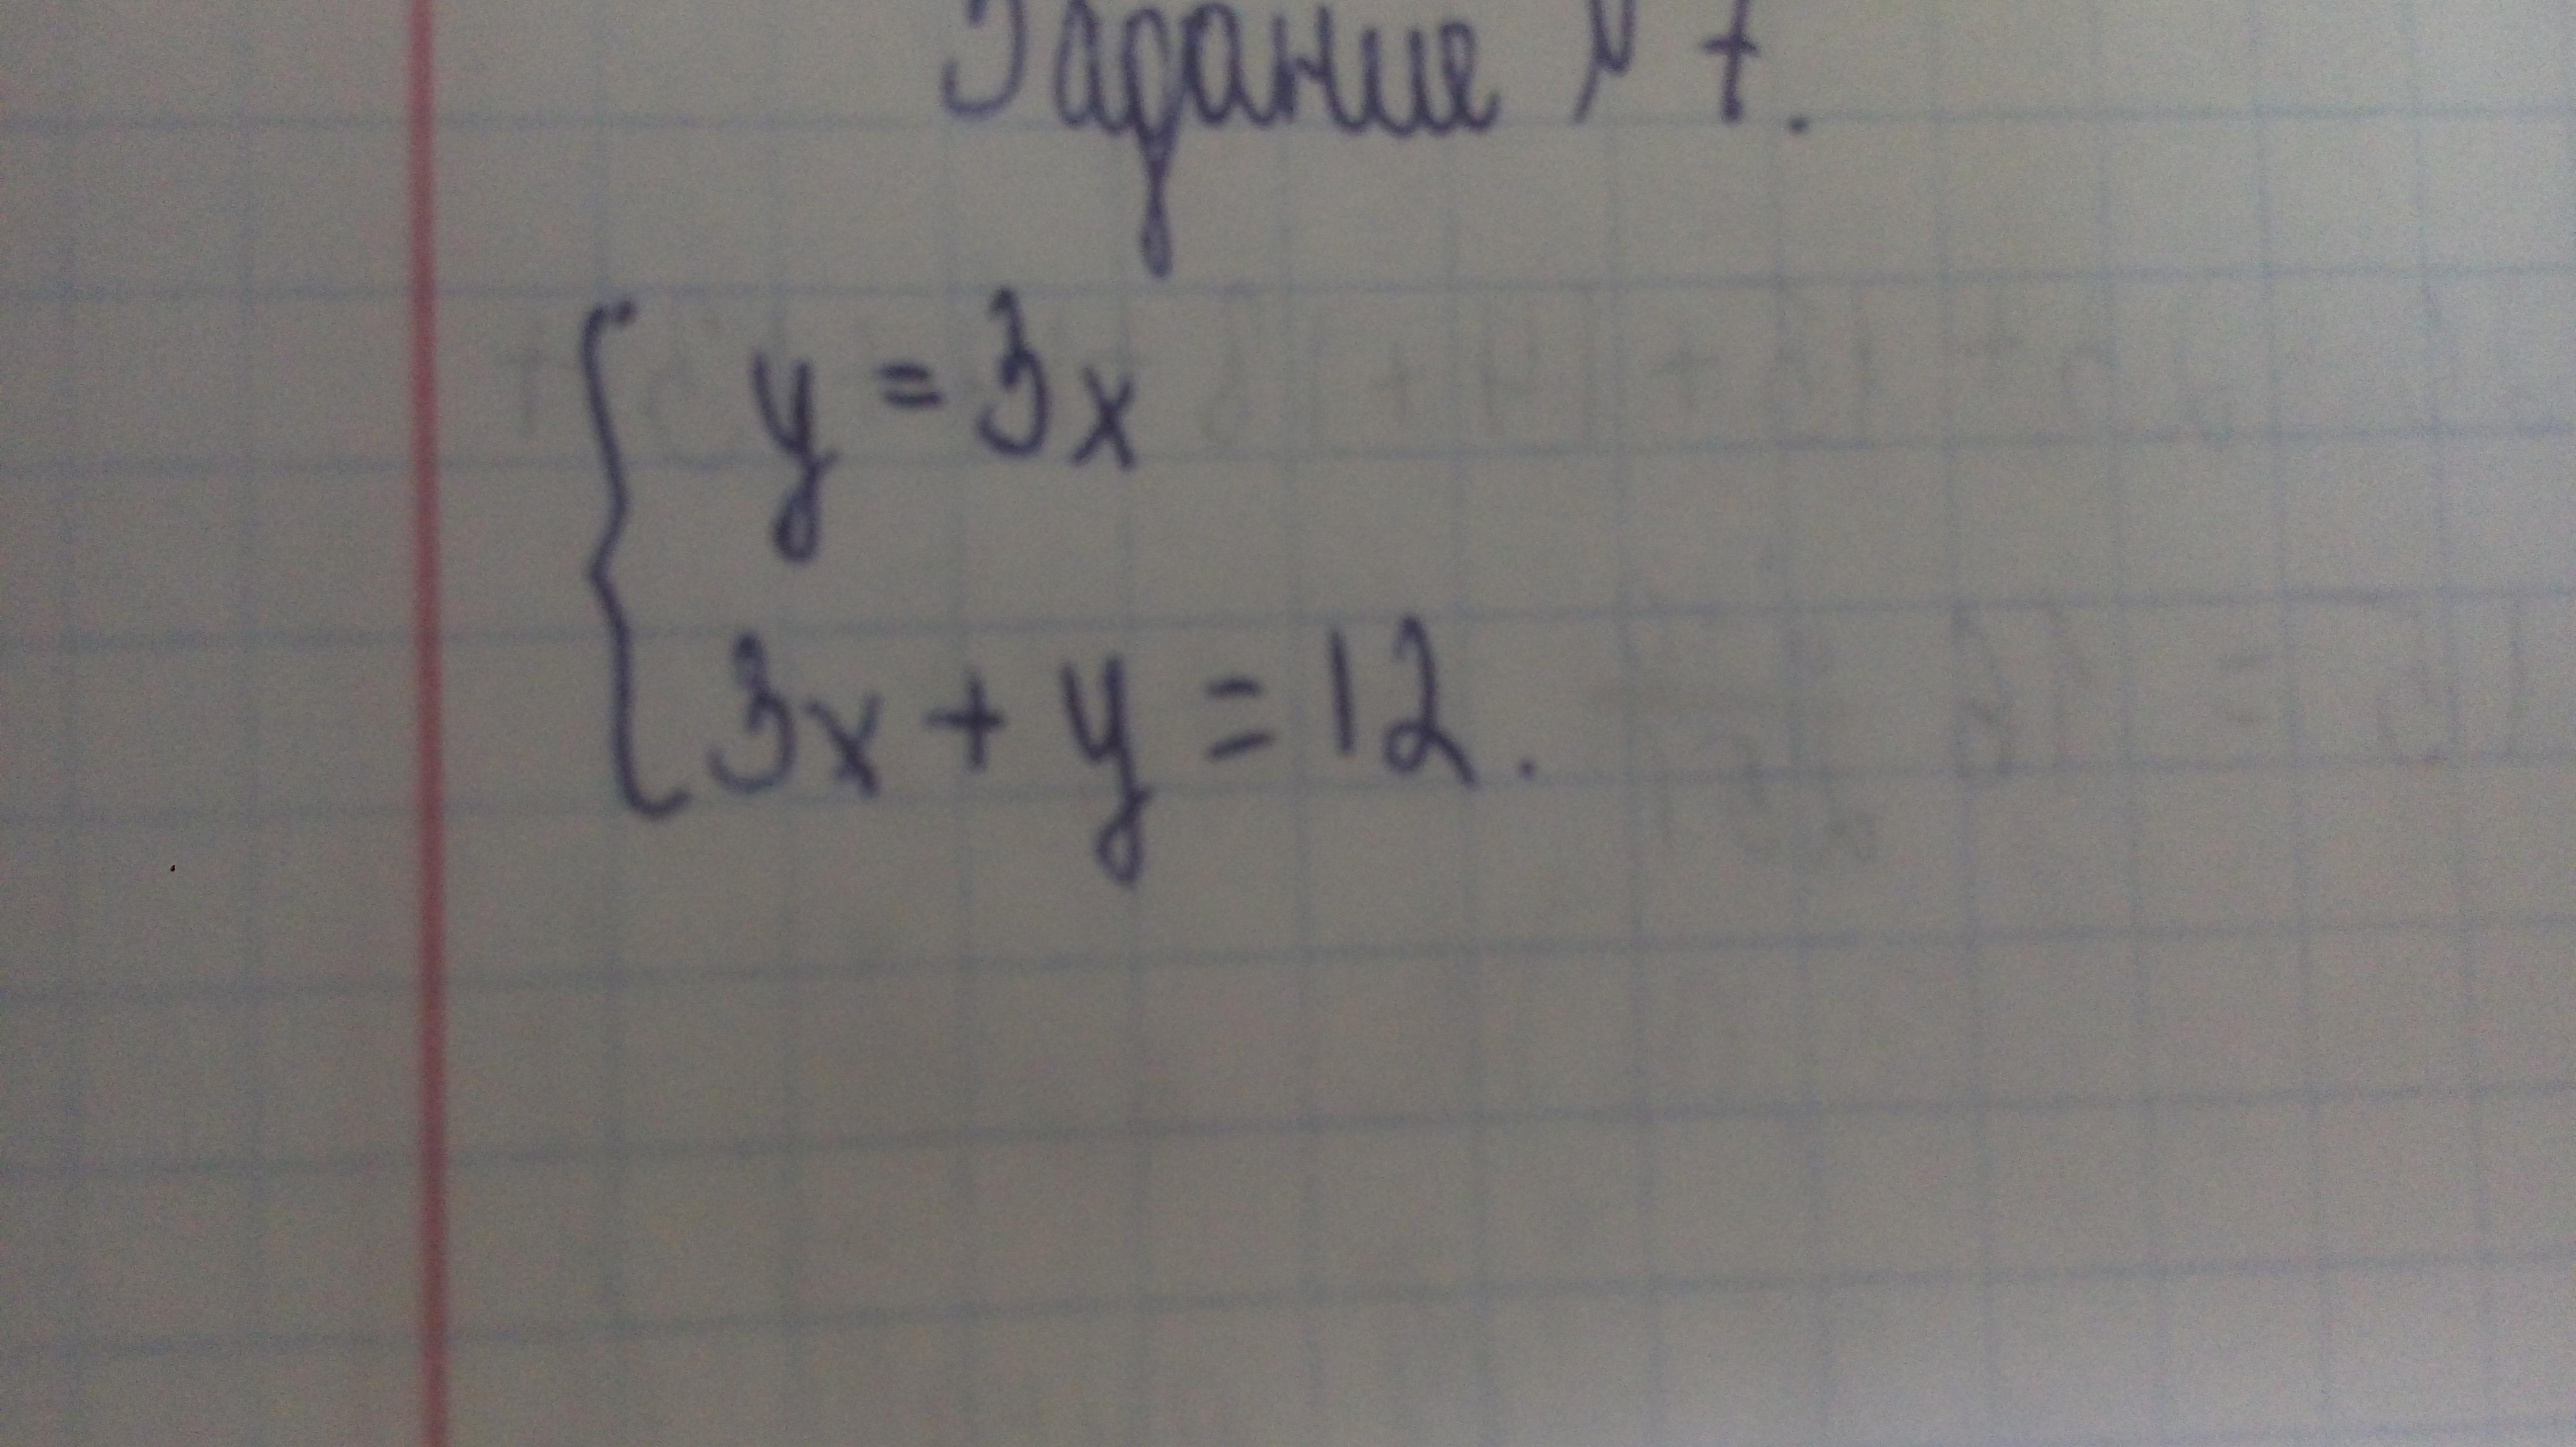 Задание № 7.
y = 3x
3x + y = 12.